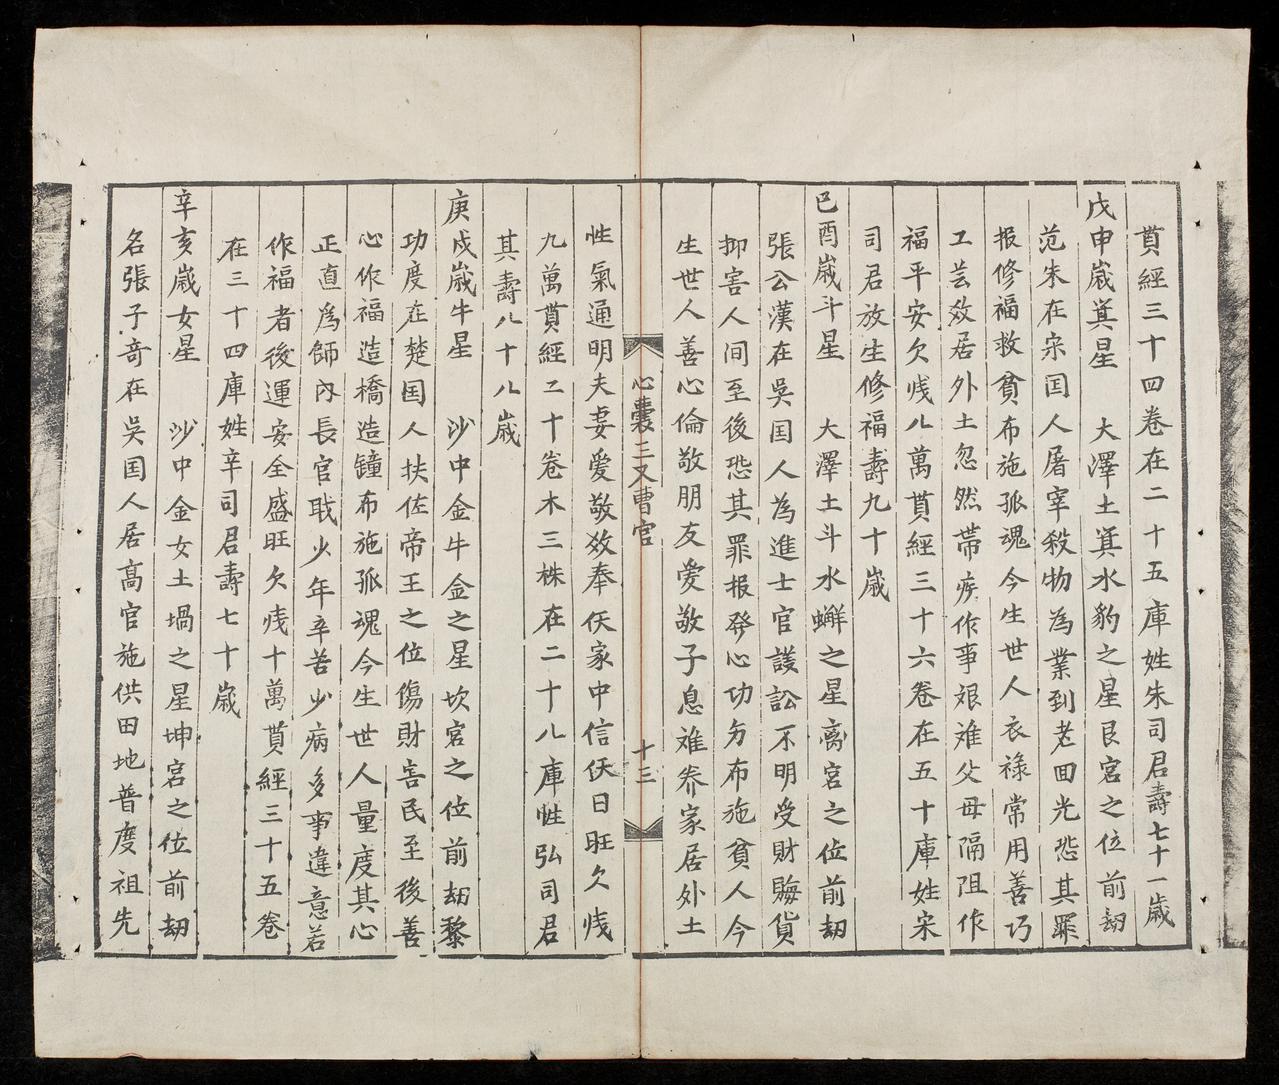 貫經三十四卷在二十五庫姓朱司君壽七十一歲
戊申歲箕星 大澤土箕水豹之星艮宮之位前刼
范朱在宋囯人屠宰殺物為業到老囬光恐其罪
报修福救貧布施孤魂今生世人衣祿常用善巧
工芸效居外土忽然帶疾作事艰难父母隔阻作
福平安欠㦮八萬貫經三十六卷在五十庫姓宋
司君放生修福壽九十歲
巳酉歲斗星 大澤土斗水蠏之星离宮之位前刼
張公漢在吳囯人為進士官議訟不明受財賜貨
抑害人间至後恐其罪报發心功为布施貧人今
生世人善心倫敬朋友爱敬子息难养家居外土
心囊三又曹官 十三
性氣通明夫妻爱敬效奉仸家中信仸日旺欠㦮
九萬貫經二十卷木三株在二十八庫姓弘司君
其壽八十八歲
庚戌歲牛星 沙中金牛金之星坎宮之位前刼黎
功度在楚囯人扶佐帝王之位傷財害民至後善
心作福造橋造鐘布施孤魂今生世人量度其心
正直為師內長官戢少年辛苦少病多事違意若
作福者後運安全盛旺欠㦮十萬貫經三十五卷
在三十四庫姓辛司君壽七十歲
辛亥歲女星 沙中金女土堝之星坤宮之位前刼
名張子奇在吳囯人居高官施供田地普度祖先